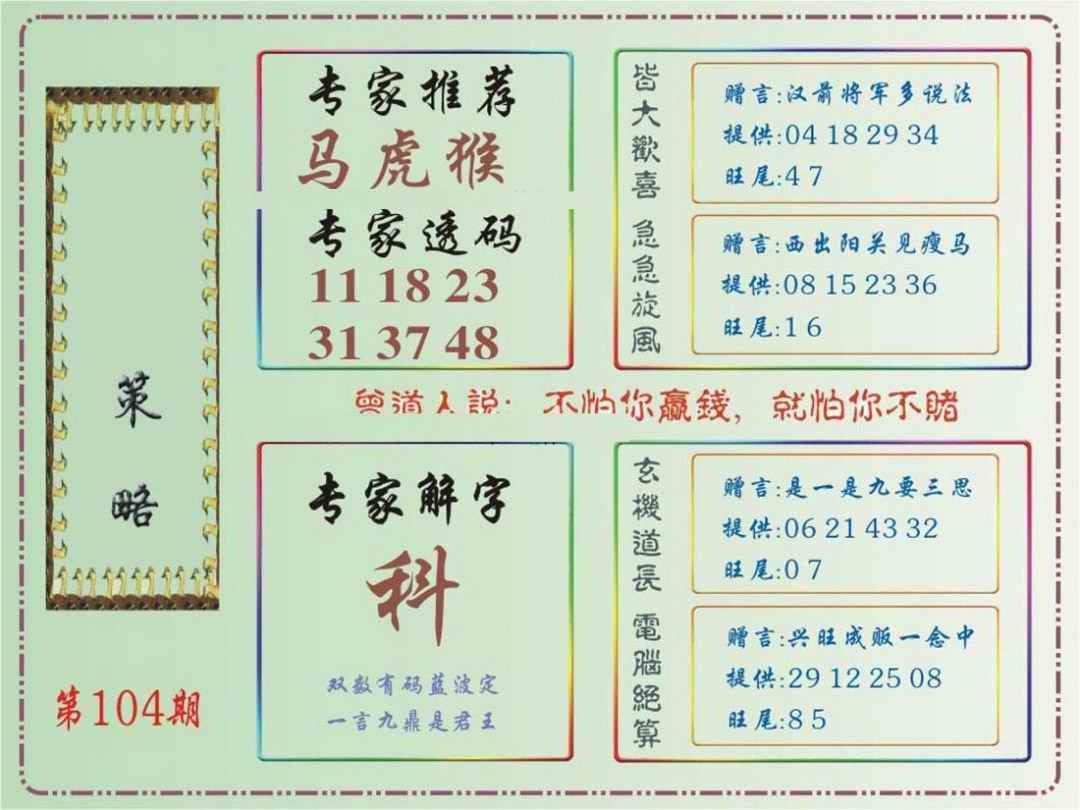 策略
第104期
专家推荐
马虎猴
专家透码
11 18 23
31 37 48
皆大歡喜
赠言:汉前将军多说法
提供:04 18 29 34
旺尾:4 7
急急旋風
赠言:西出阳关见瘦马
提供:08 15 23 36
旺尾:1 6
曾道人説: 不怕你贏錢, 就怕你不賭
专家解字
科
双数有码蓝波定
一言九鼎是君王
玄機道長
赠言:是一是九要三思
提供:06 21 43 32
旺尾:0 7
電腦絕算
赠言:兴旺成贩一念中
提供:29 12 25 08
旺尾:8 5